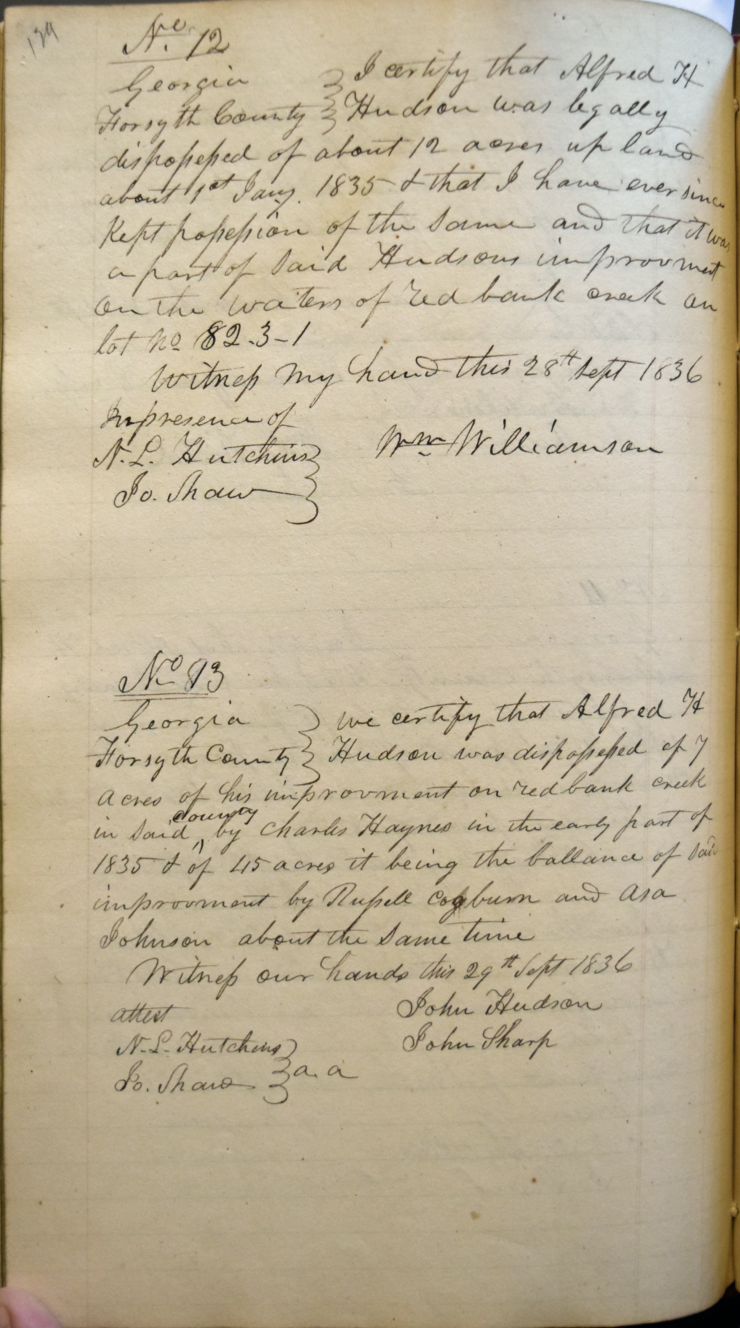 139
No. 12
Georgia } I certify that Alfred H
Forsyth County } Hudson was legally
dispossessed of about 12 acres up land
about 1st Jany. 1835 & that I have ever since
Kept possession of the same and that it was
a part of said Hudsons improvment
on the waters of red bank creek on
lot No 82-3-1
Witness my hand this 28th Sept 1836
In presence of
N. L. Hutchins } Wm Williamson
Jo. Shaw }
No 13
Georgia } we certify that Alfred H
Forsyth County } Hudson was dispossessed of 7
acres of his improvment on red bank creek
in said county by Charles Haynes in the early part of
1835 & of 45 acres it being the ballance of said
improvment by Russell Cogburn and Asa
Johnson about the same time
Witness our hands this 29th Sept 1836
attest John Hudson
N. L. Hutchins } John Sharp
Jo. Shaw } a. a